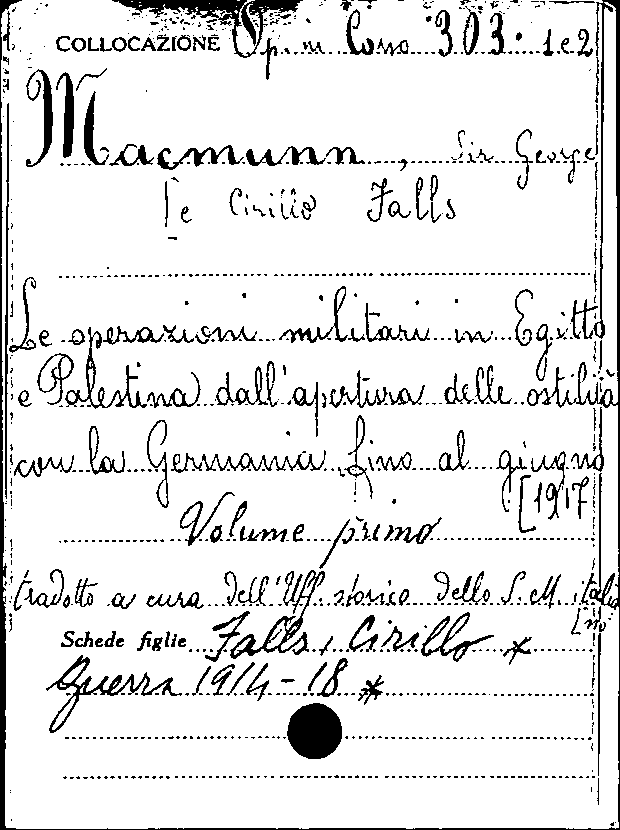 COLLOCAZIONE Op. in Corso 303. 1 e 2
Macmunn, Sir George
[e Cirillo Falls
Le operazioni militari in Egitto
e Palestina dall'apertura delle ostilità
con la Germania fino al giugno
[1917
Volume primo
tradotto a cura dell'Uff. storico dello S. M. italia
[no
Schede figlie Falls, Cirillo *
Guerra 1914-18 *